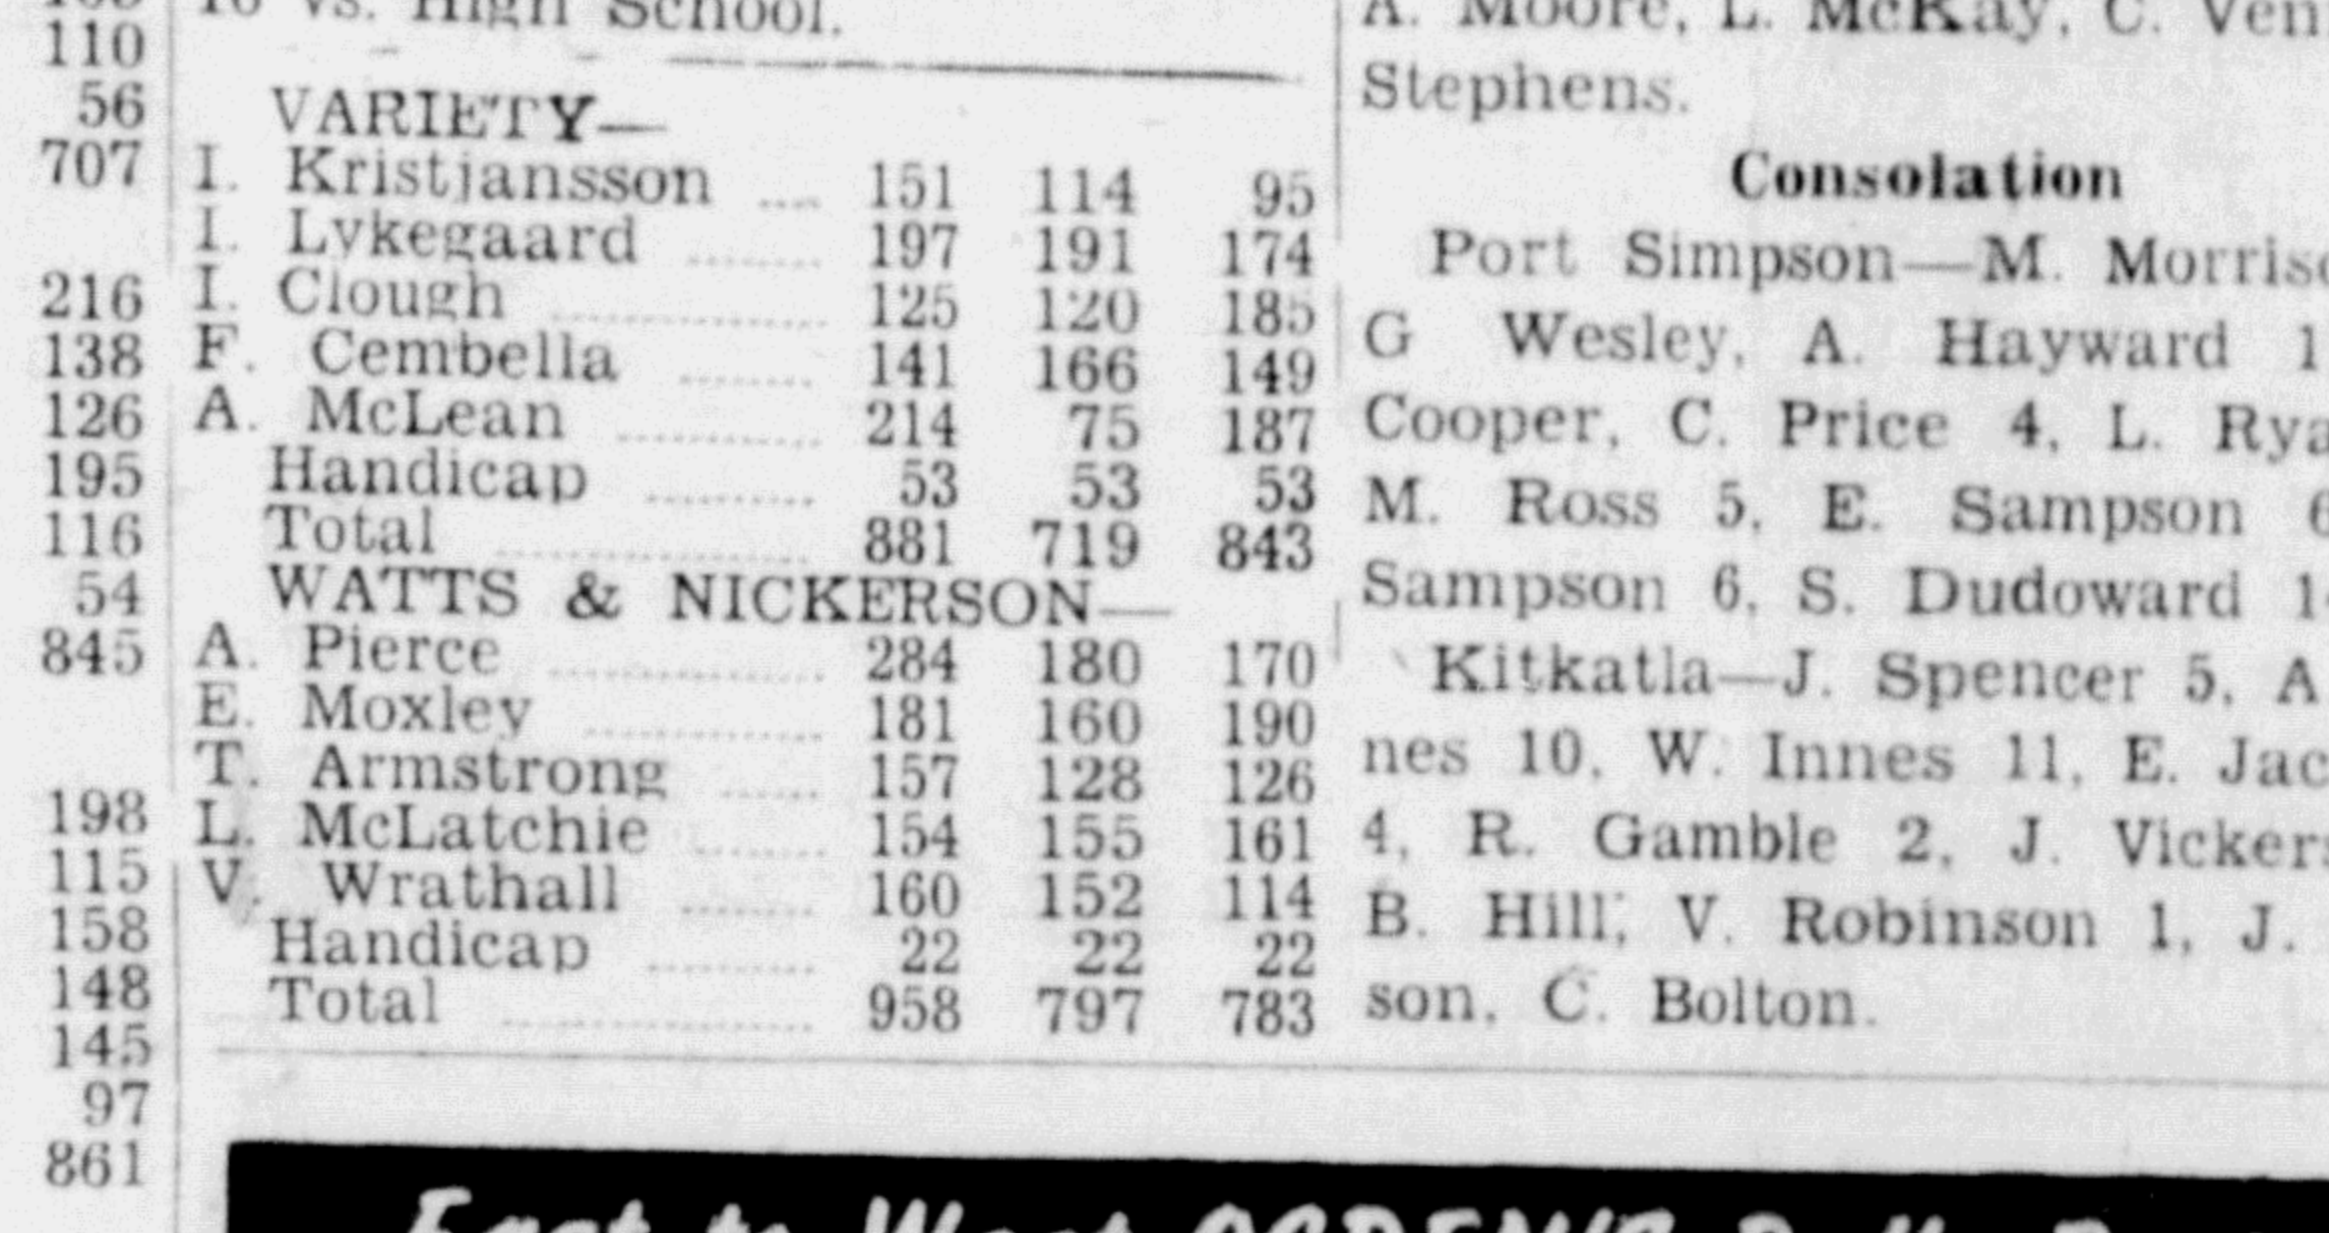 110
56
707
216
138
126
195
116
54
845
198
115
158
148
145
97
861
vs. High School.
VARIETY—
I. Kristjansson .... 151 114 95
I. Lykegaard ........ 197 191 174
I. Clough ................ 125 120 185
F. Cembella ........ 141 166 149
A. McLean ............ 214 75 187
Handicap .......... 53 53 53
Total .................. 881 719 843
WATTS & NICKERSON—
A. Pierce ................ 284 180 170
E. Moxley .............. 181 160 190
T. Armstrong ...... 157 128 126
L. McLatchie ........ 154 155 161
V. Wrathall ........ 160 152 114
Handicap .......... 22 22 22
Total .................. 958 797 783
A. Moore, L. McKay, C. Ven
Stephens.
Consolation
Port Simpson—M. Morriso
G Wesley, A. Hayward 1
Cooper, C. Price 4, L. Rya
M. Ross 5, E. Sampson 6
Sampson 6, S. Dudoward 1
Kitkatla—J. Spencer 5, A
nes 10, W. Innes 11, E. Jac
4, R. Gamble 2, J. Vickers
B. Hill, V. Robinson 1, J.
son, C. Bolton.
East to West